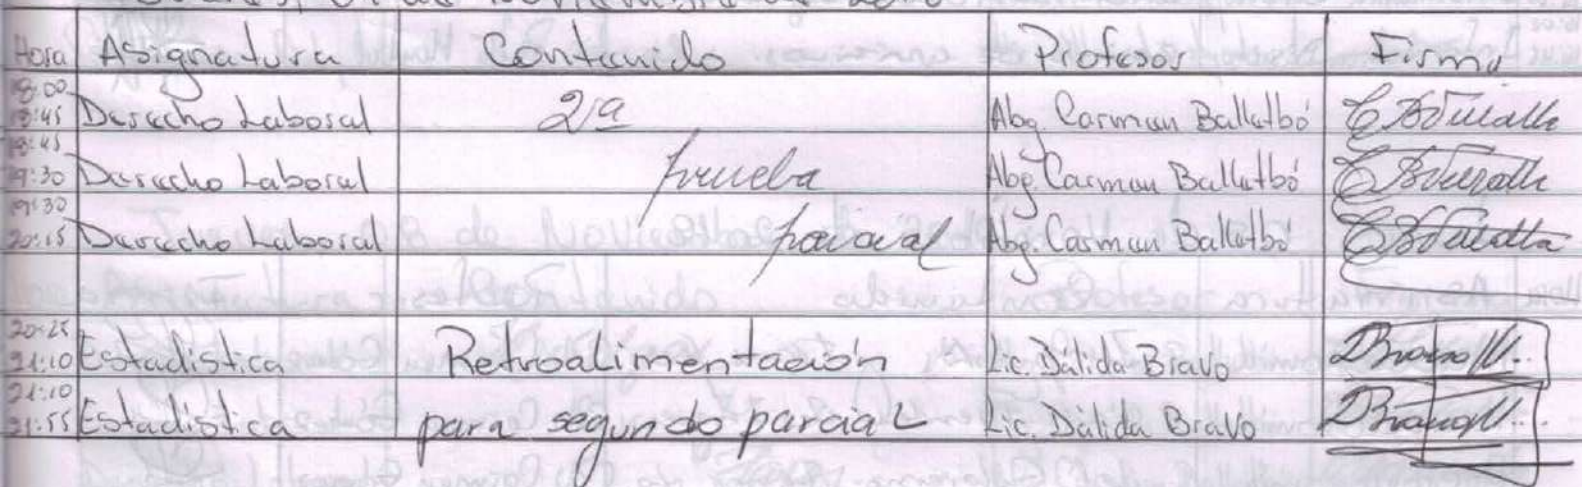 Hora Asignatura Contenido Profesor Firma
18:00
18:45 Derecho Laboral 2ª Abg. Carmen Ballatbó
18:45
19:30 Derecho Laboral prueba Abg. Carmen Ballatbó
19:30
20:15 Derecho Laboral parcial Abg. Carmen Ballatbó
20:25
21:10 Estadistica Retroalimentación Lic. Dálida Bravo
21:10
21:55 Estadistica para segundo parcial Lic. Dálida Bravo